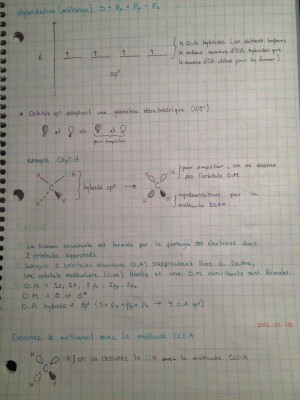 Hybridation (mélange) S + Px + Py + Pz
E
4 O.A. hybrides (on obtient toujours
le même nombre d'O.A hybrides que
le nombre d'OA utilisé pour les former)
sp³
* Orbitale sp³ adoptent une géométrie tétraédrique (109°)
et = et
pour simplifier
exemple CH3OH
H
O
C
H
H
H
hybridé sp³
→
pour simplifier, on ne dessine
pas l'orbitale O.M.
représentation par la
méthode CLOA
La liaison covalente est formée par le partage des électrons dans
2 orbitales
Lorsque 2 orbitales atomiques (O.A) s'approchent l'une de l'autre,
une orbitale moléculaire (O.M) liante et une O.M. non-liante sont formées.
O.A = 1s, 2s, 2px, 2py, 2pz
O.M. = σ et σ*
O.A. hybride = sp³ (s + Px + Py + Pz → 4 O.A sp³)
Dessinez le méthanol avec la méthode CLOA
H
C
H
on va dessiner le OH avec la méthode CLOA